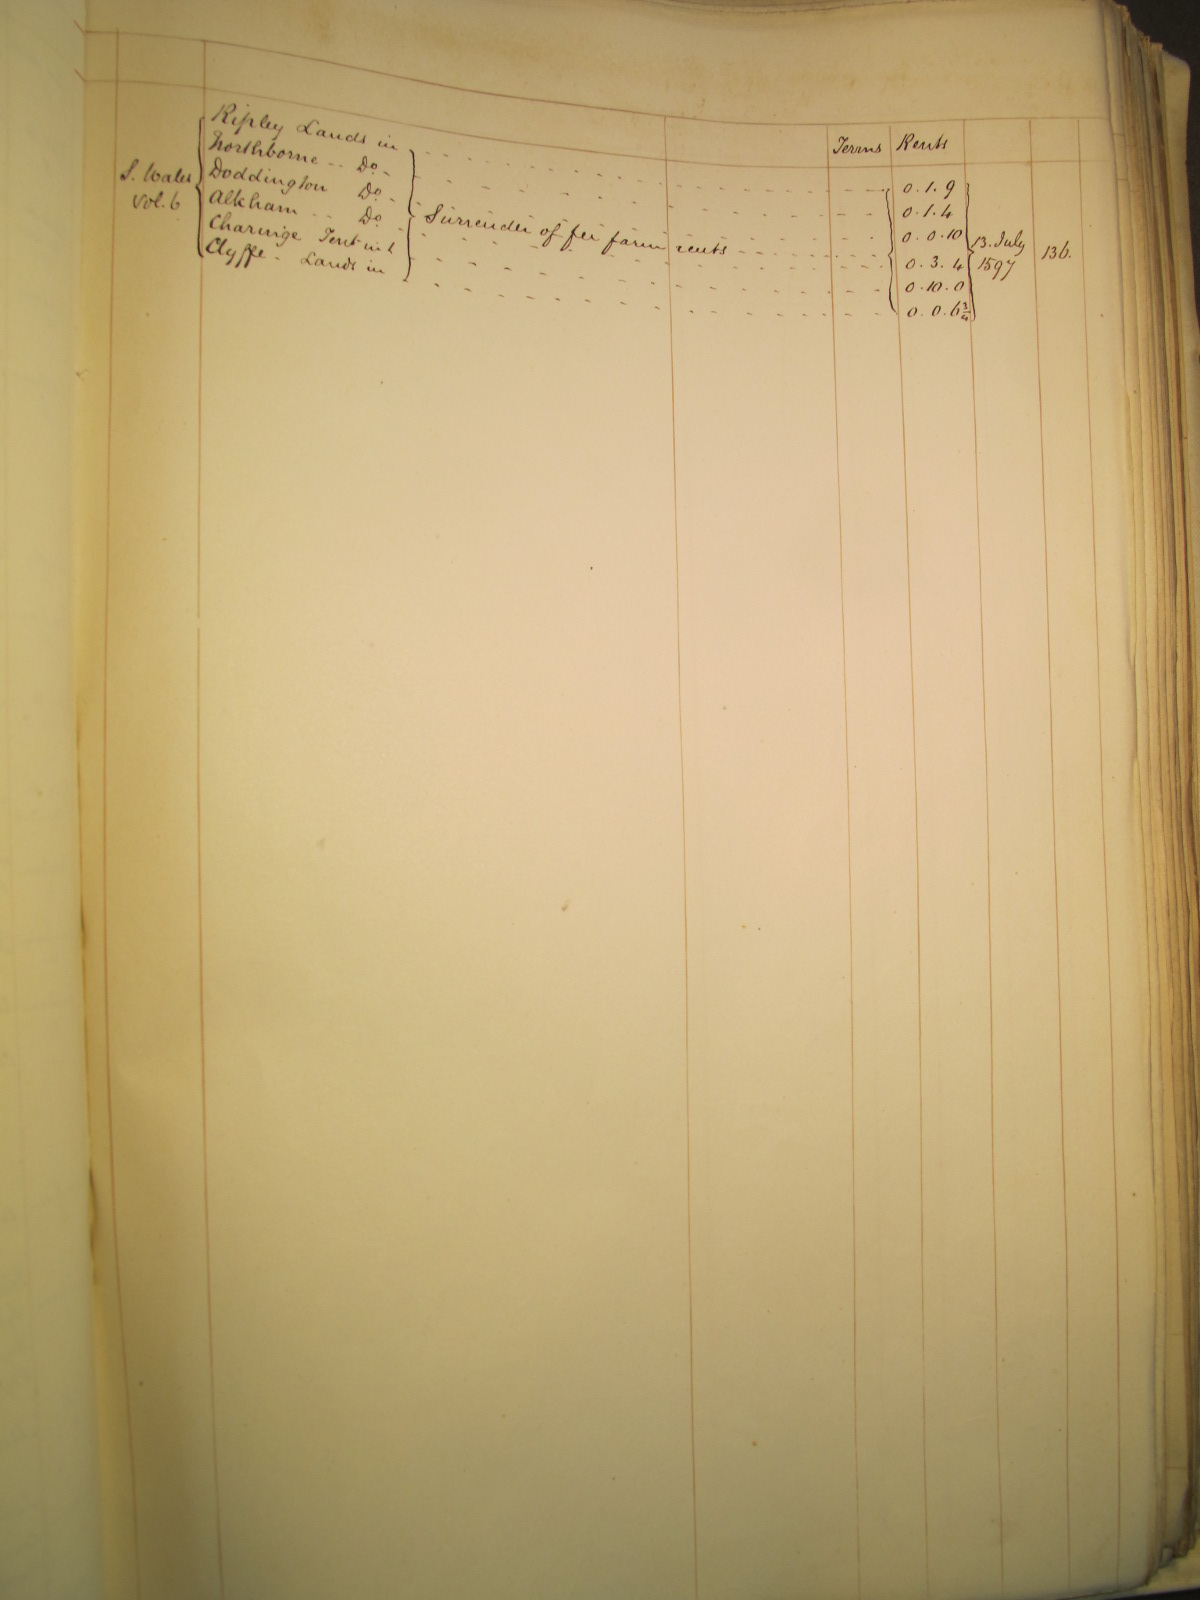 Terms Rents
Ripley Lands in 0. 1. 9
Northborne -- Do - 0. 1. 4
S. Wales Doddington Do - 0. 0. 10 13. July
Vol. 6 Alkham -- Do - Surrender of fee farm rents 0. 3. 4 1597 136.
Charinge Tent in 0. 10. 0
Clyffe - Lands in 0. 0. 6 3/4